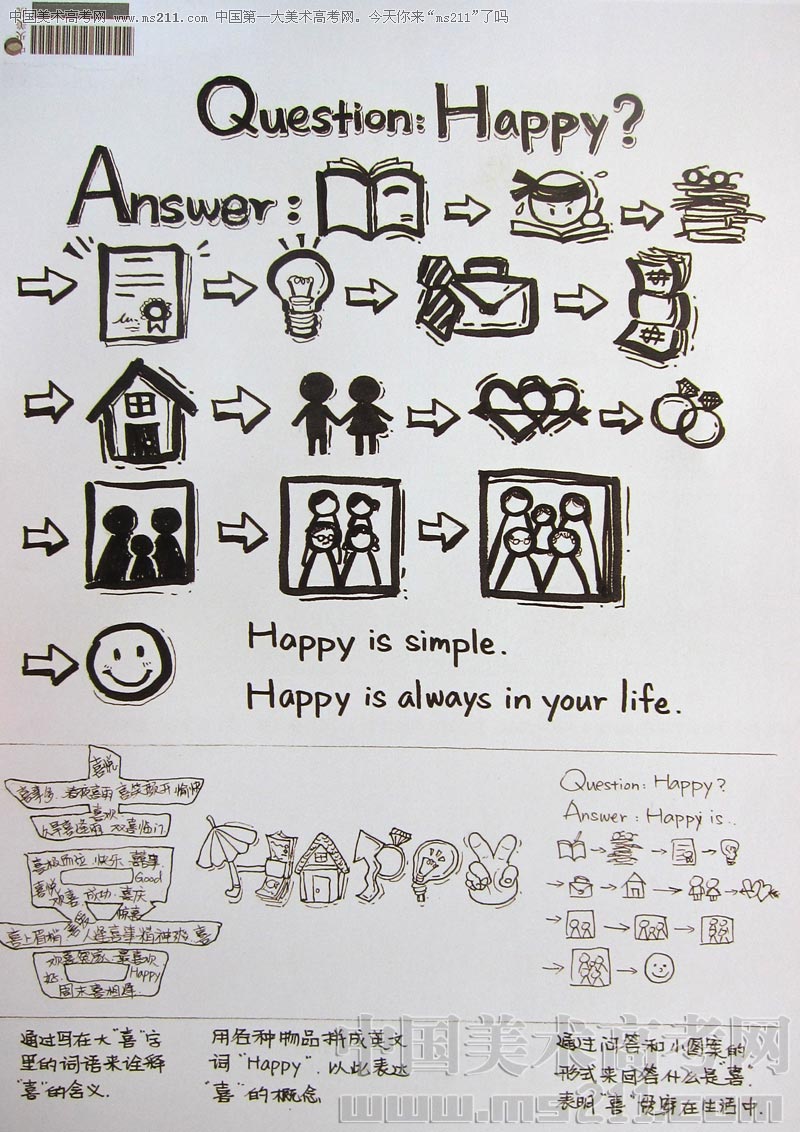 中国美术高考网 www.ms211.com 中国第一大美术高考网。今天你来“ms211”了吗
Question: Happy?
Answer:
$
$
Happy is simple.
Happy is always in your life.
喜悦
喜事多 春夜喜雨 喜笑颜开 愉悦
喜欢
久旱喜逢雨 双喜临门
喜极而泣 快乐
Good
喜悦
欢喜 成功 喜庆
惊喜
喜上眉梢 人逢喜事精神爽 喜
最喜欢
Happy
周末喜相逢
Question: Happy?
Answer: Happy is..
通过写在大“喜”字
里的词语来诠释
“喜”的含义.
用各种物品拼成英文
词“Happy”. 以此表达
“喜”的概念
通过问答和小图案的
形式来回答什么是“喜”.
表明“喜”贯穿在生活中.
中国美术高考网
www.ms211.com